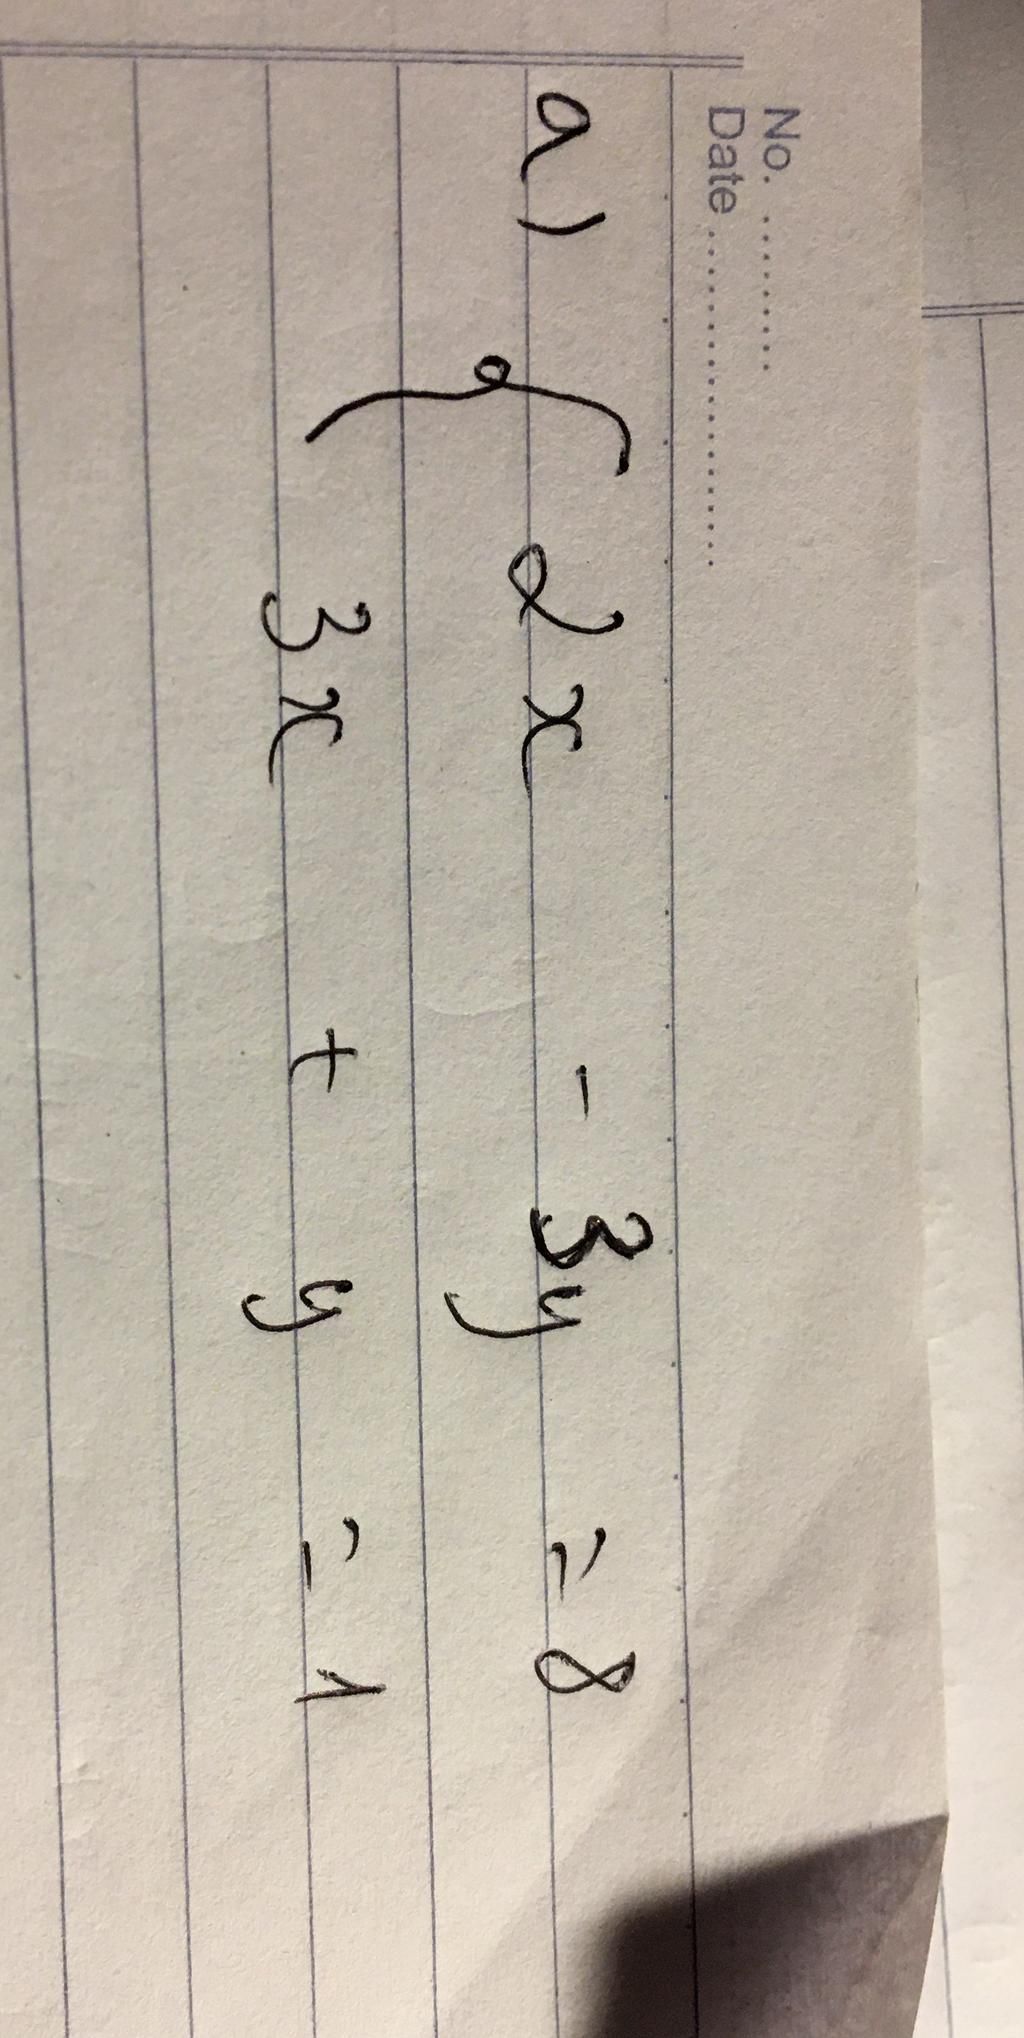 No. ...........
Date ..............................
a) { 2x - 3y = 8
3x + y = 1